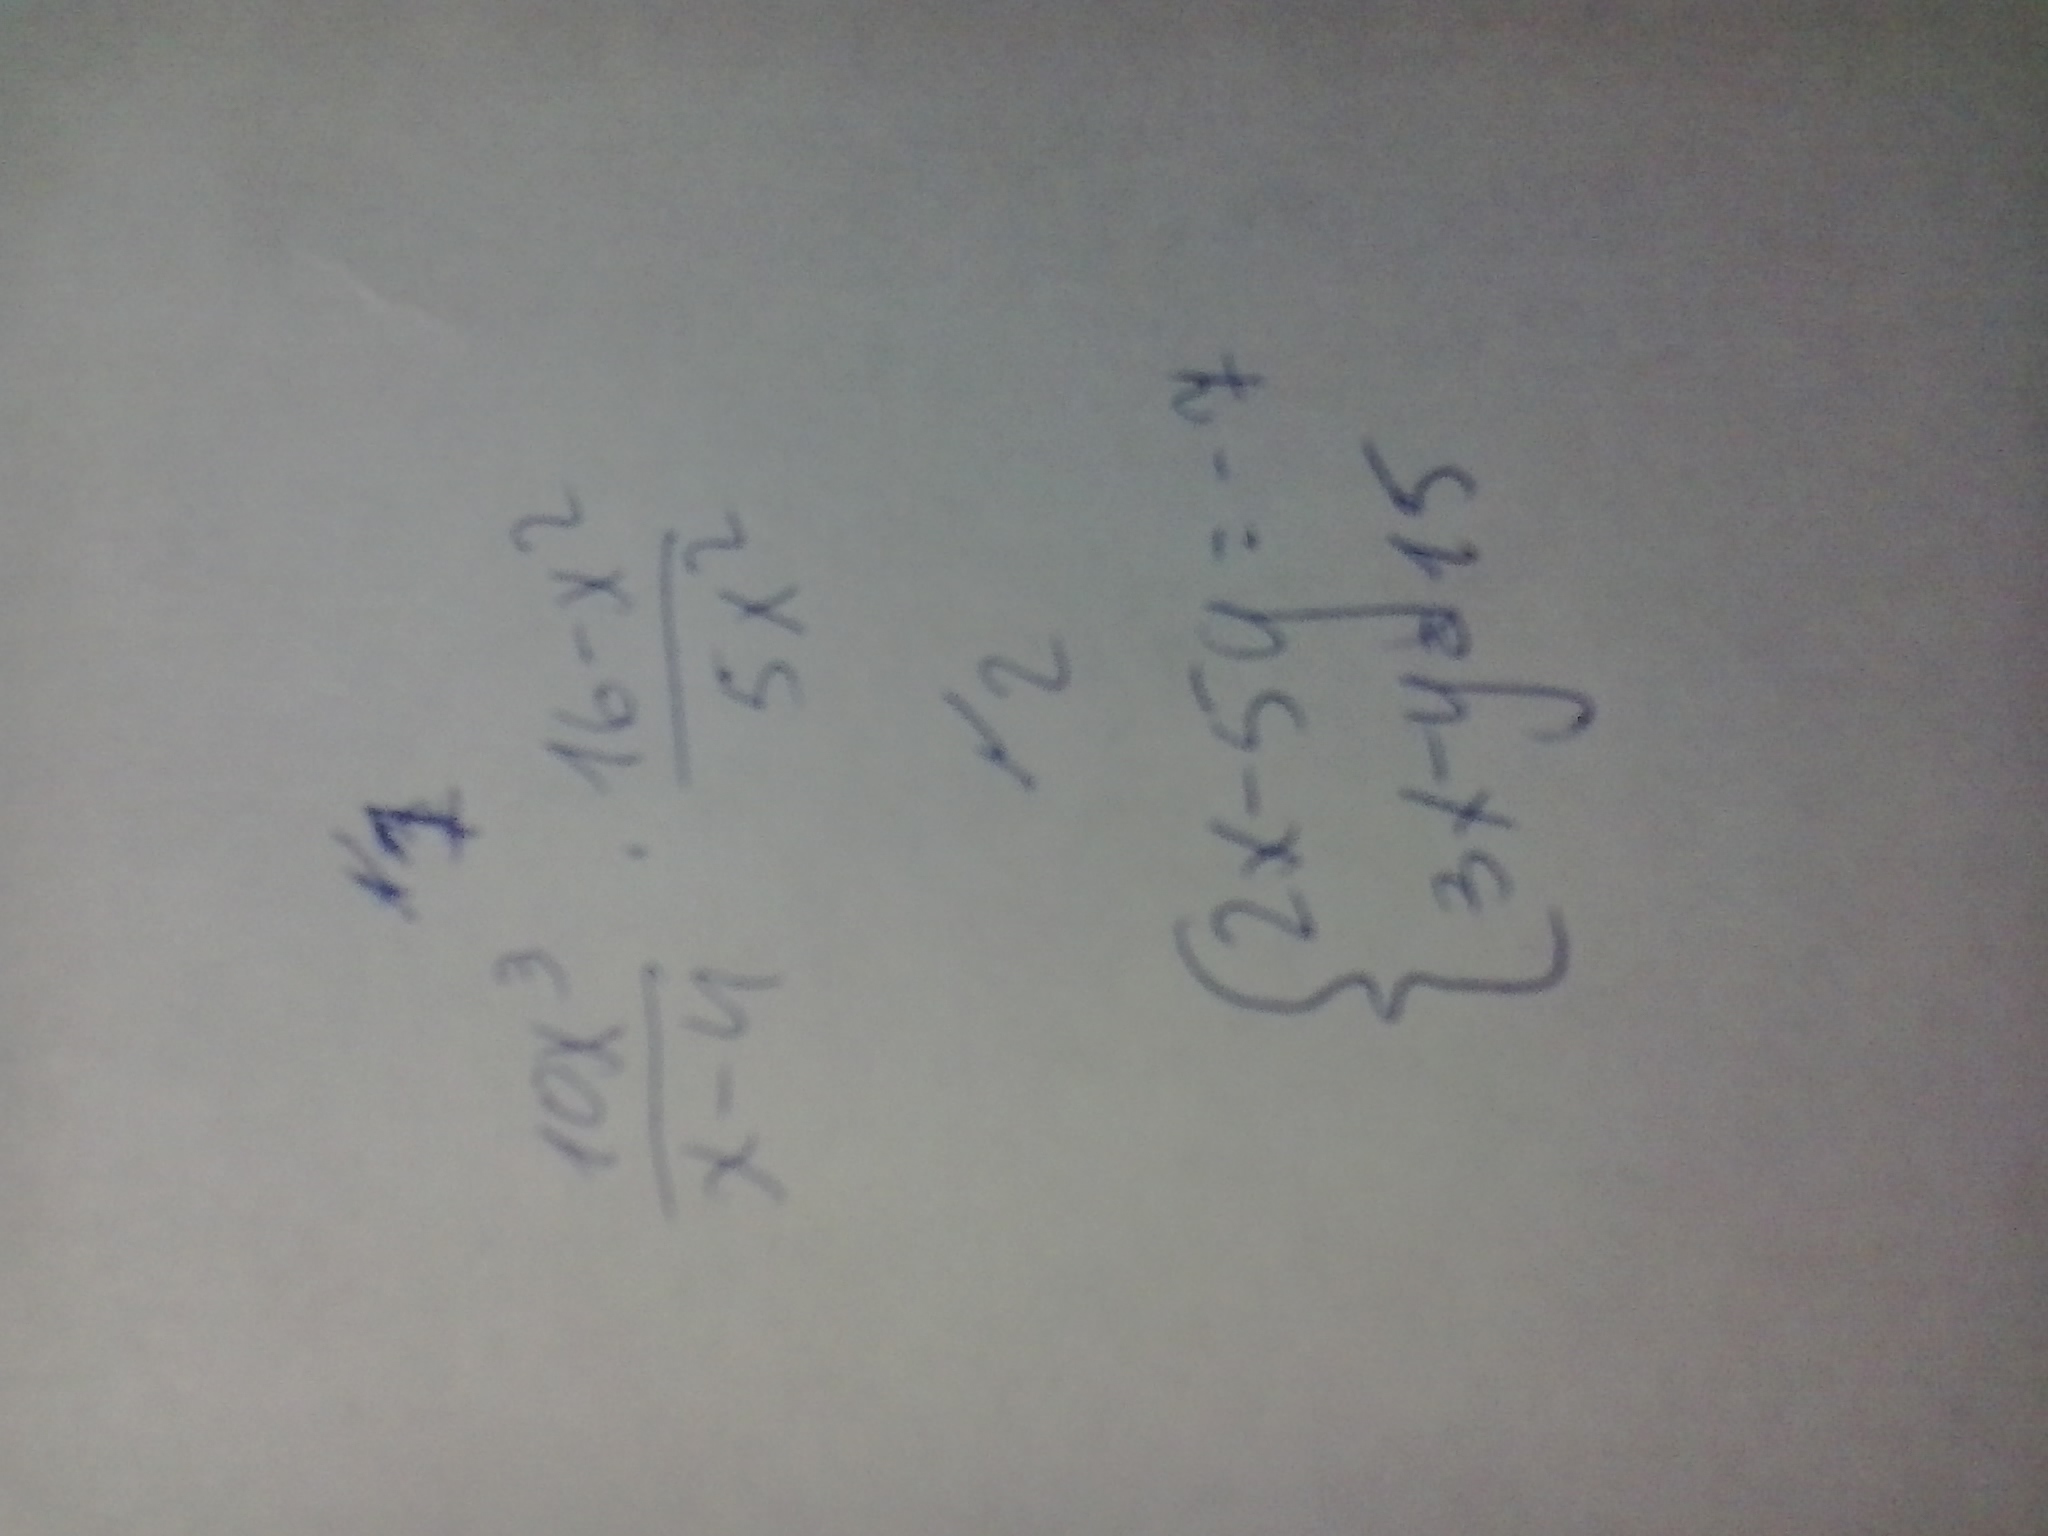 N1
10x³/(x-4) · (16-x²)/(5x²)
N2
{2x-5y=-7
3x-y=15